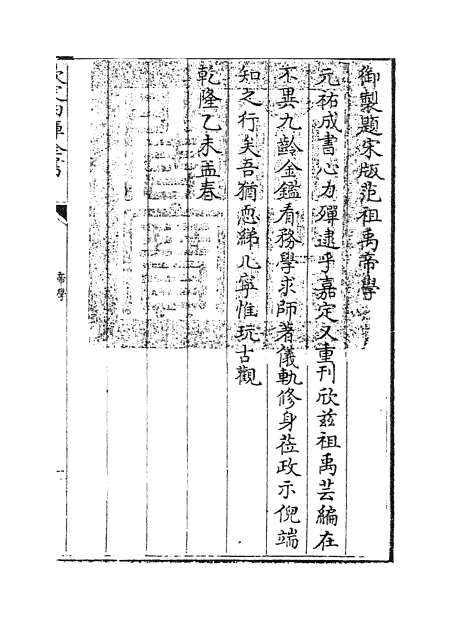 御製題宋版范祖禹帝學
元祐成書心力殫逮乎嘉定又重刊欣兹祖禹芸編在
不異九齡金鑑看務學求師著儀軌修身莅政示倪端
知之行矣吾猶恧綈几寧惟玩古觀
乾隆乙未孟春
欽定四庫全書
帝學
一